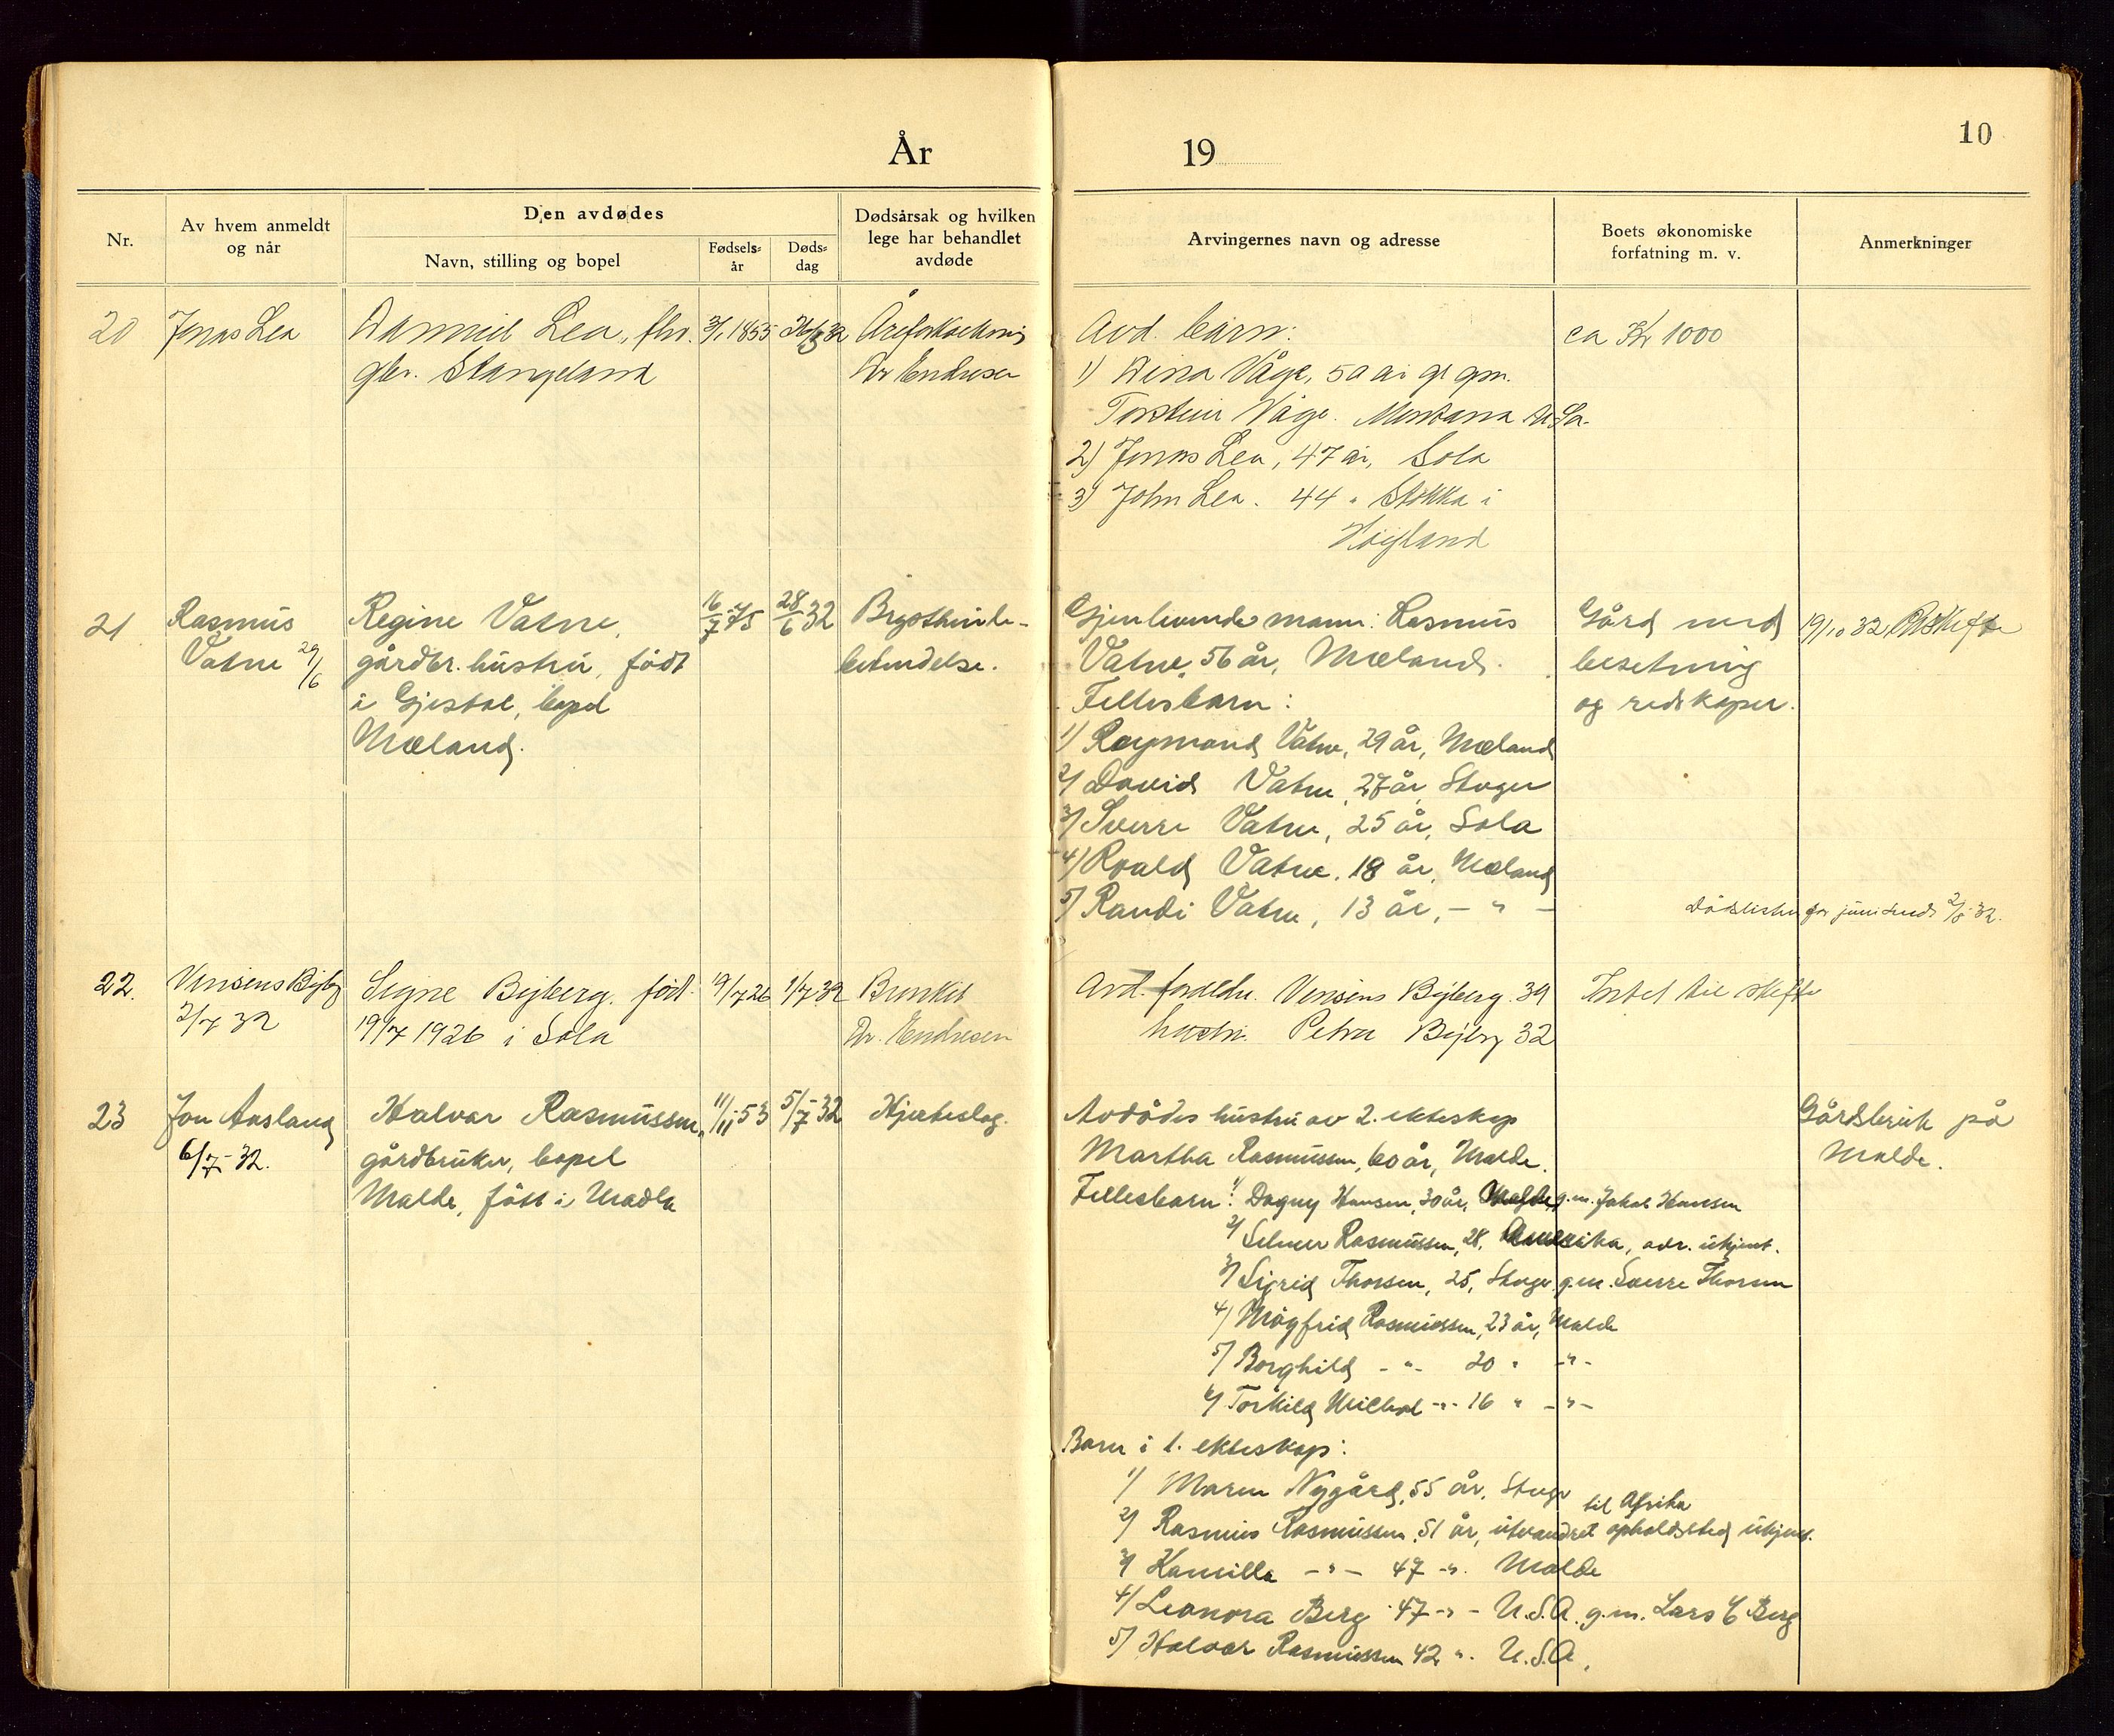 År 19
10
Nr.
Av hvem anmeldt
og når
Den avdødes
Navn, stilling og bopel
Fødsels-
år
Døds-
dag
Dødsårsak og hvilken
lege har behandlet
avdøde
Arvingernes navn og adresse
Boets økonomiske
forfatning m. v.
Anmerkninger
20 Jonas Lea
Lea, fhv.
gbr. Stangeland
1855
Dr Endresen
Avd. barn:
1) Dina Våge, 50 år gl gm.
Torstein Våge. Montana
2) Jonas Lea, 47 år, Sola
3) John Lea. 44 " Stokka i
Høyland
ca Kr 1000
21 Rasmus
Vatne 29/6
Regine Vatne,
gårdbr. hustru, født
i Gjestal, bopel
Mæland.
16/7-75
28/6 32
Brysthinde-
betendelse.
Gjenlevende mann: Rasmus
Vatne, 56 år, Mæland.
Fellesbarn:
1) Raymond Vatne, 29 år, Mæland
2) David Vatne, 27 år, Stvger
3) Sverre Vatne, 25 år, Sola
4) Roald Vatne, 18 år, Mæland
5) Randi Vatne, 13 år, - " -
Gård med
besetning
og redskaper.
19/10 32
Dødslisten for juni sendt 2/8-32.
22. Vinsens Byberg
2/7 32
Signe Byberg. født
19/7 1926 i Sola
19/7 26
1/7 32
Dr. Endresen
Avd. foreldre. Vinsens Byberg 39
hustru. Petra Byberg 32
Intet til skifte
23 Jon Aasland
6/7-32.
Halvar Rasmussen,
gårdbruker, bopel
Malde, født i Madla
11/11-53
5/7-32
Hjerteslag.
Avdødes hustru av 2. ekteskap
Martha Rasmussen, 60 år, Malde.
Fellesbarn: 1) Dagny Hansen, 30 år, g.m. Jakob Hansen
2) Selmer Rasmussen, 28, Amerika, adr. ukjent.
3) Sigrid Thorsen, 25, Stvger g.m. Sverre Thorsen
4) Møyfrid Rasmussen, 23 år, Malde
5) Borghild - " - 20 " - " -
6) Torkild - " - 16 " - " -
Barn i 1. ekteskap:
1) Maren Nygård, 55 år, Stvgr
til Afrika
2) Rasmus Rasmussen, 51 år, utvandret opholdsted ukjent.
3) Kamilla - " - 47 - " Malde
4) Leonora Berg 47 - " - U.S.A. g.m. Lars C Berg
5) Halvar Rasmussen 42 " U.S.A.
Gårdsbruk på
Malde.